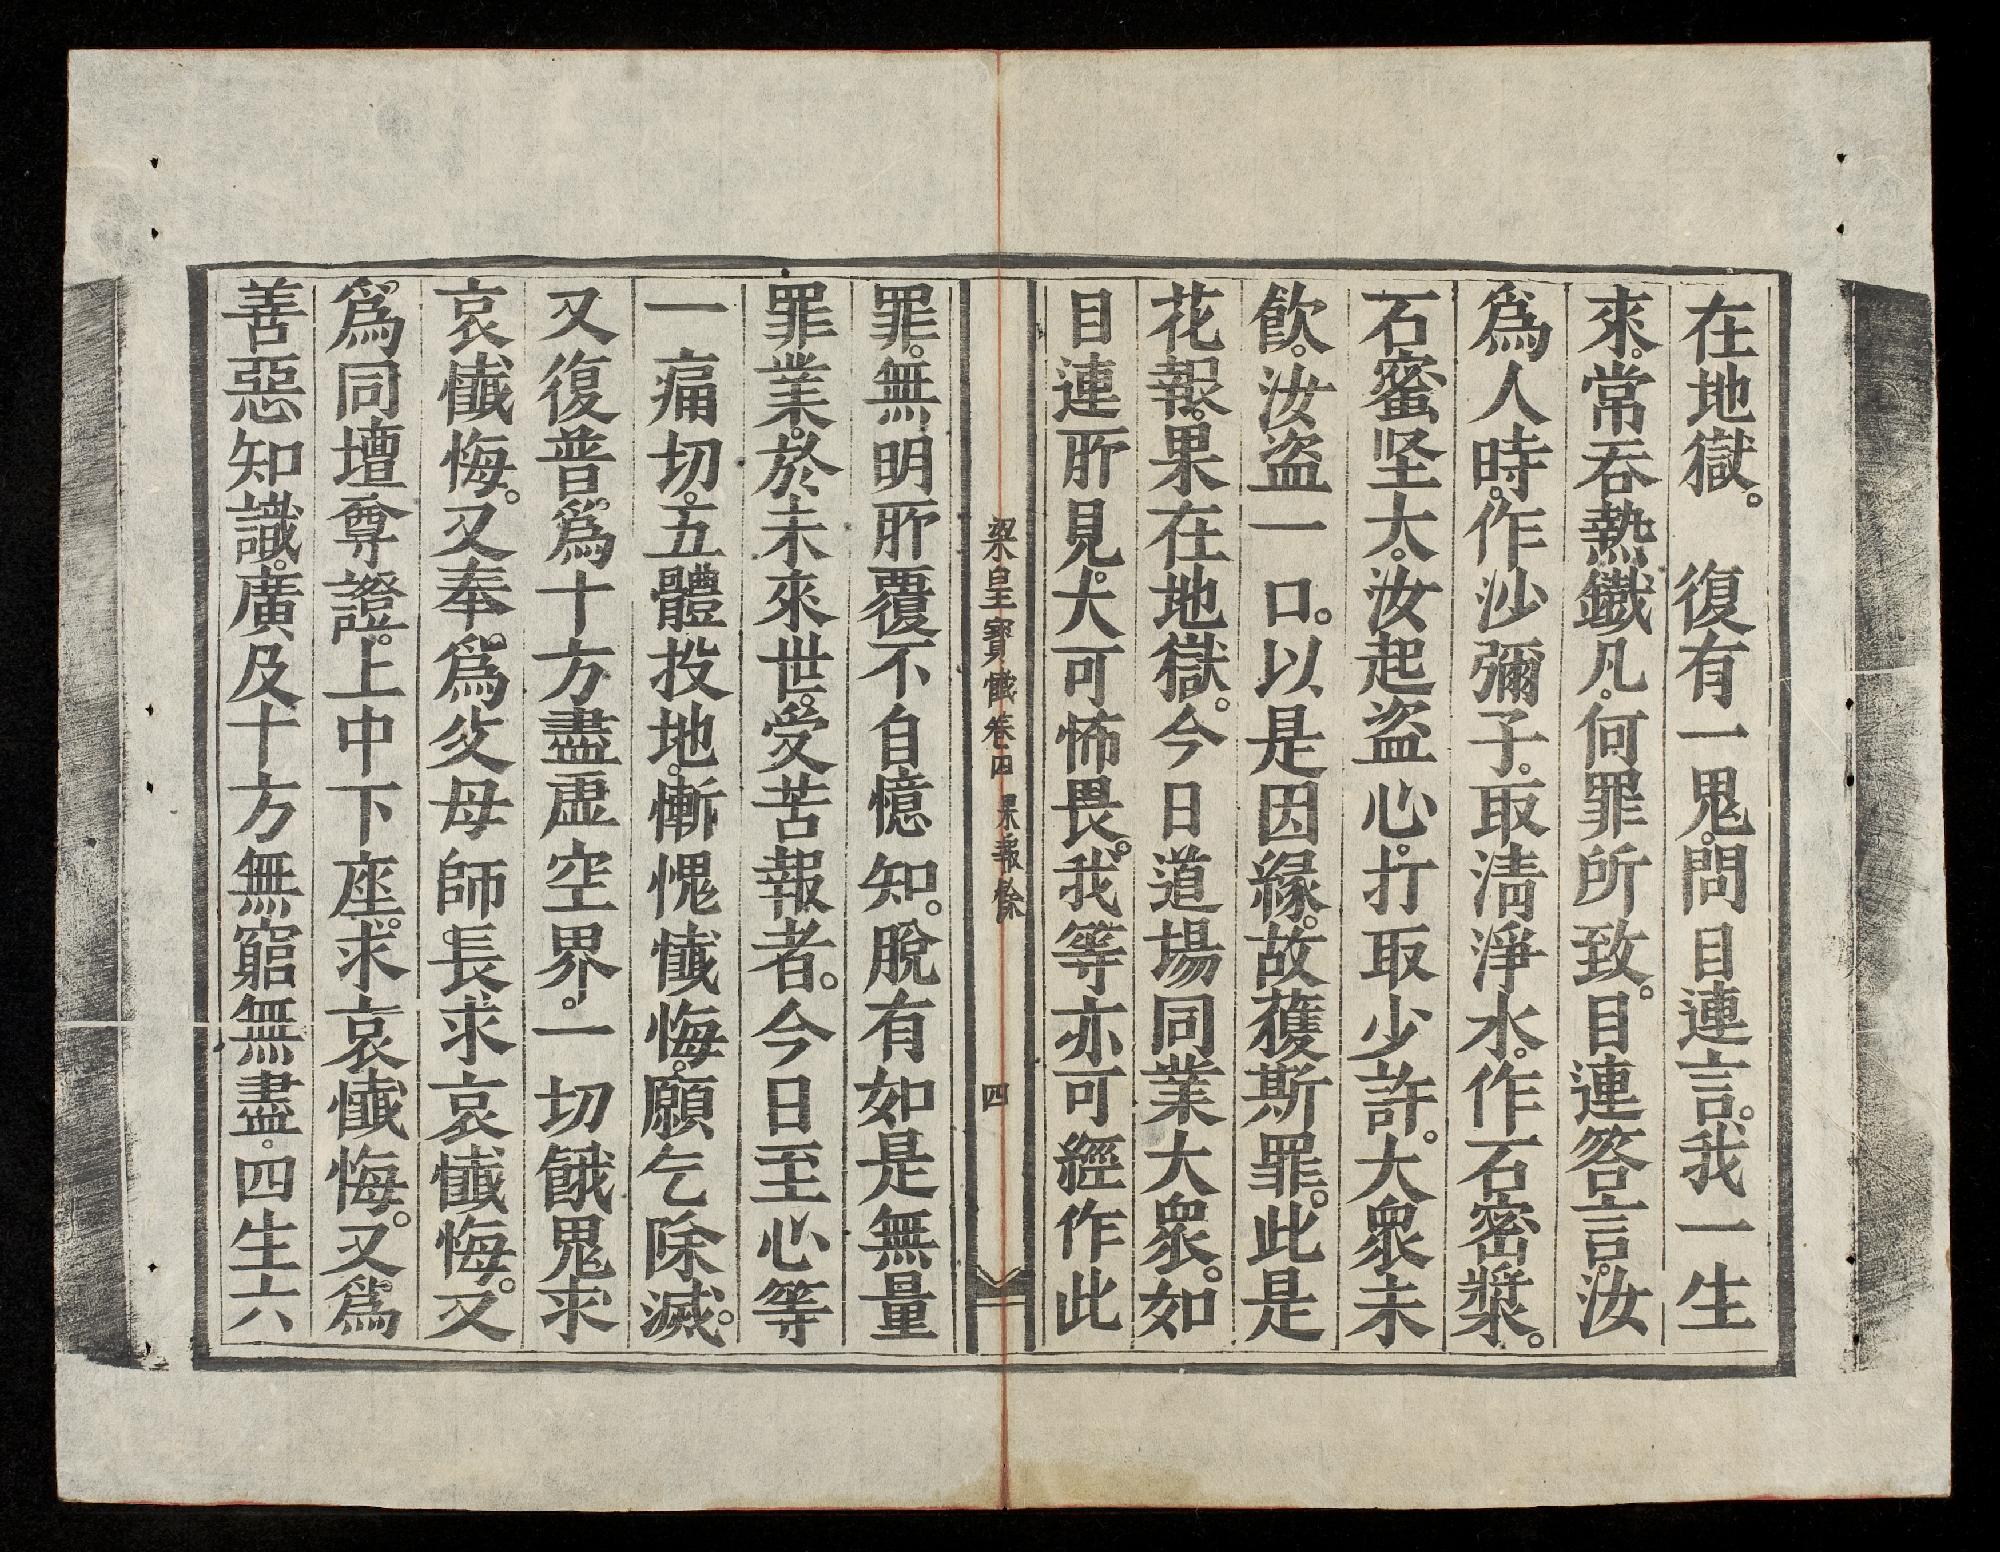 在地獄。　復有一鬼。問目連言。我一生
來。常吞熱鐵凡。何罪所致。目連答言。汝
爲人時。作沙彌子。取淸淨水。作石密漿。
石蜜坚大。汝起盗心。打取少許。大衆未
飲。汝盗一口。以是因緣。故獲斯罪。此是
花報。果在地獄。今日道場同業大衆。如
目連所見。大可怖畏。我等亦可經作此
梁皇寶懺卷四 果報餘 四
罪。無明所覆不自憶知。脫有如是無量
罪業。於未來世。受苦報者。今日至心等
一痛切。五體投地。慚愧懺悔。願乞除滅。
又復普。爲十方盡虛空界。一切餓鬼求
哀懺悔。又奉。爲父母師長。求哀懺悔。又
爲。同壇尊證。上中下座。求哀懺悔。又爲
善惡知識。廣及十方無窮無盡。四生六